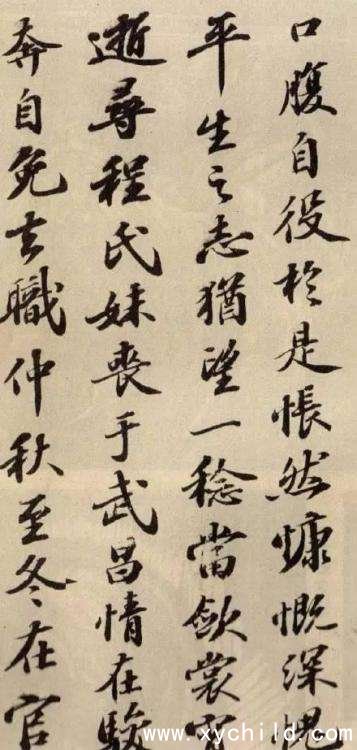 口腹自役於是悵然慷慨深愧
平生之志猶望一稔當斂裳宵
逝尋程氏妹喪于武昌情在駿
奔自免去職仲秋至冬在官
www.xychild.com